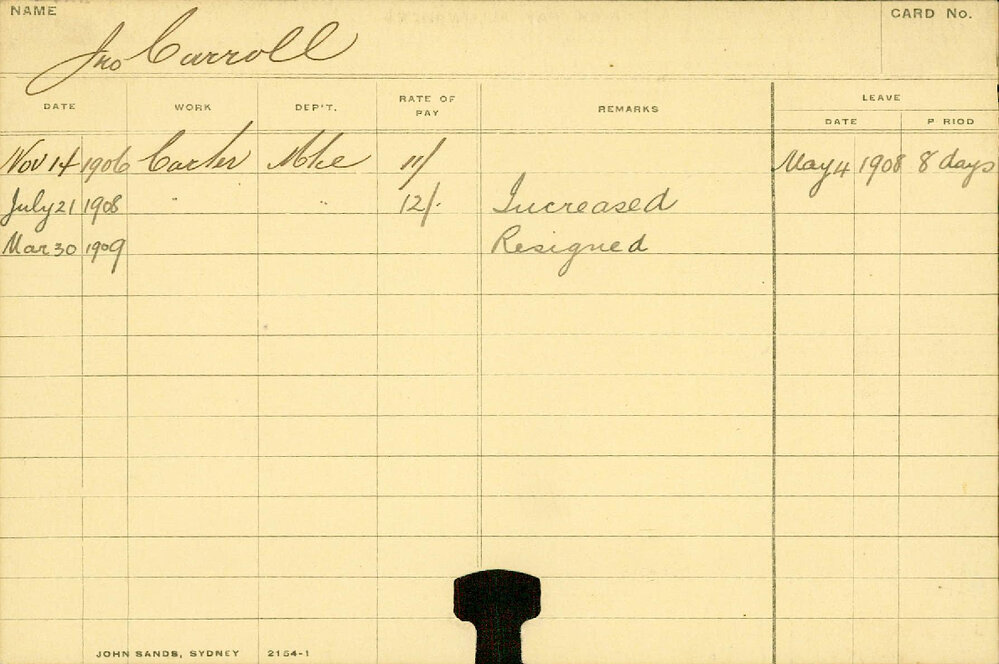 NAME
CARD No.
Jno Carroll
DATE WORK DEP'T. RATE OF PAY REMARKS LEAVE
DATE P RIOD
Nov 14 1906 Carter Mtce 11/ May 4 1908 8 days
July 21 1908 " " 12/- Increased
Mar 30 1909 Resigned
JOHN SANDS, SYDNEY 2154-1